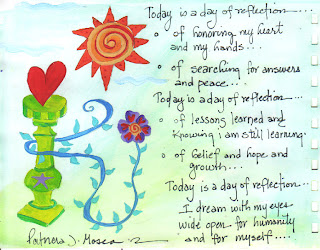 Today is a day of reflection....
• of honoring my heart
and my hands...
• of searching for answers
and peace...
Today is a day of reflection....
• of lessons learned and
Knowing i am still learning
• of belief and hope and
growth....
Today is a day of reflection...
I dream with my eyes
wide open for humanity
and for myself....
J. Mosca